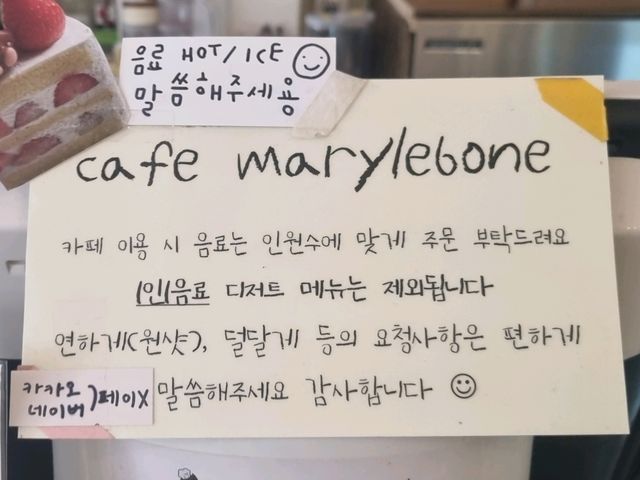 음료 HOT/ICE
말씀해주세용
cafe marylebone
카페 이용 시 음료는 인원수에 맞게 주문 부탁드려요
1인1음료 디저트 메뉴는 제외됩니다
연하게(원샷), 덜달게 등의 요청사항은 편하게
말씀해주세요 감사합니다
카카오
네이버)페이X